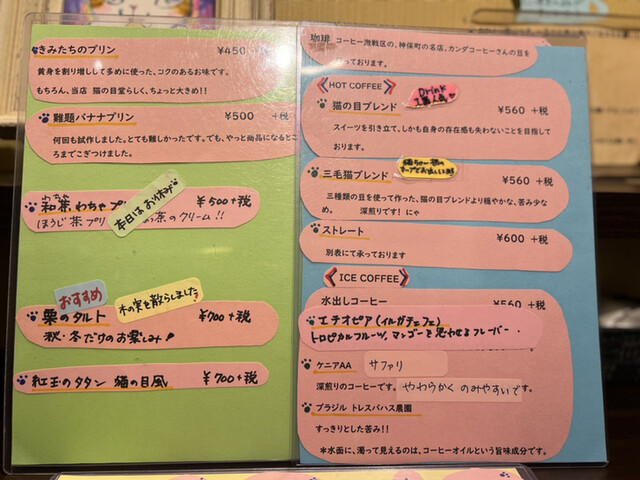 きみたちのプリン ¥450
黄身を割り増しして多めに使った、コクのあるお味です。
もちろん、当店 猫の目堂らしく、ちょっと大きめ!!
難題バナナプリン ¥500 +税
何回も試作しました。とても難しかったです。でも、やっと商品になるとこ
ろまでこぎつけました。
わちゃ
和茶 わちゃ プ ¥500+税
ほうじ茶プリ っ茶のクリーム!!
本日はお休み
おすすめ
木の実を散らしました
栗のタルト ¥700+税
秋・冬だけのお楽しみ!
紅玉のタタン 猫の目風 ¥700+税
珈琲 コーヒー激戦区の、神保町の名店、カンダコーヒーさんの豆を
っております。
HOT COFFEE
Drink
猫の目ブレンド ¥560 +税
スイーツを引き立て、しかも自身の存在感も失わないことを目指して
おります。
三毛猫ブレンド ¥560 +税
三種類の豆を使って作った、猫の目ブレンドより穏やかな、苦み少な
め。 深煎りです! にゃ
ストレート ¥600 +税
別表にて承っております
ICE COFFEE
水出しコーヒー ¥560 +税
エチオピア(イルガチェフェ)
トロピカルフルーツ、マンゴーを思わせるフレーバー・
ケニアAA サファリ
深煎りのコーヒーです。 やわらかく のみやすいです。
ブラジル トレスバハス農園
すっきりとした苦み!!
*水面に、濁って見えるのは、コーヒーオイルという旨味成分です。